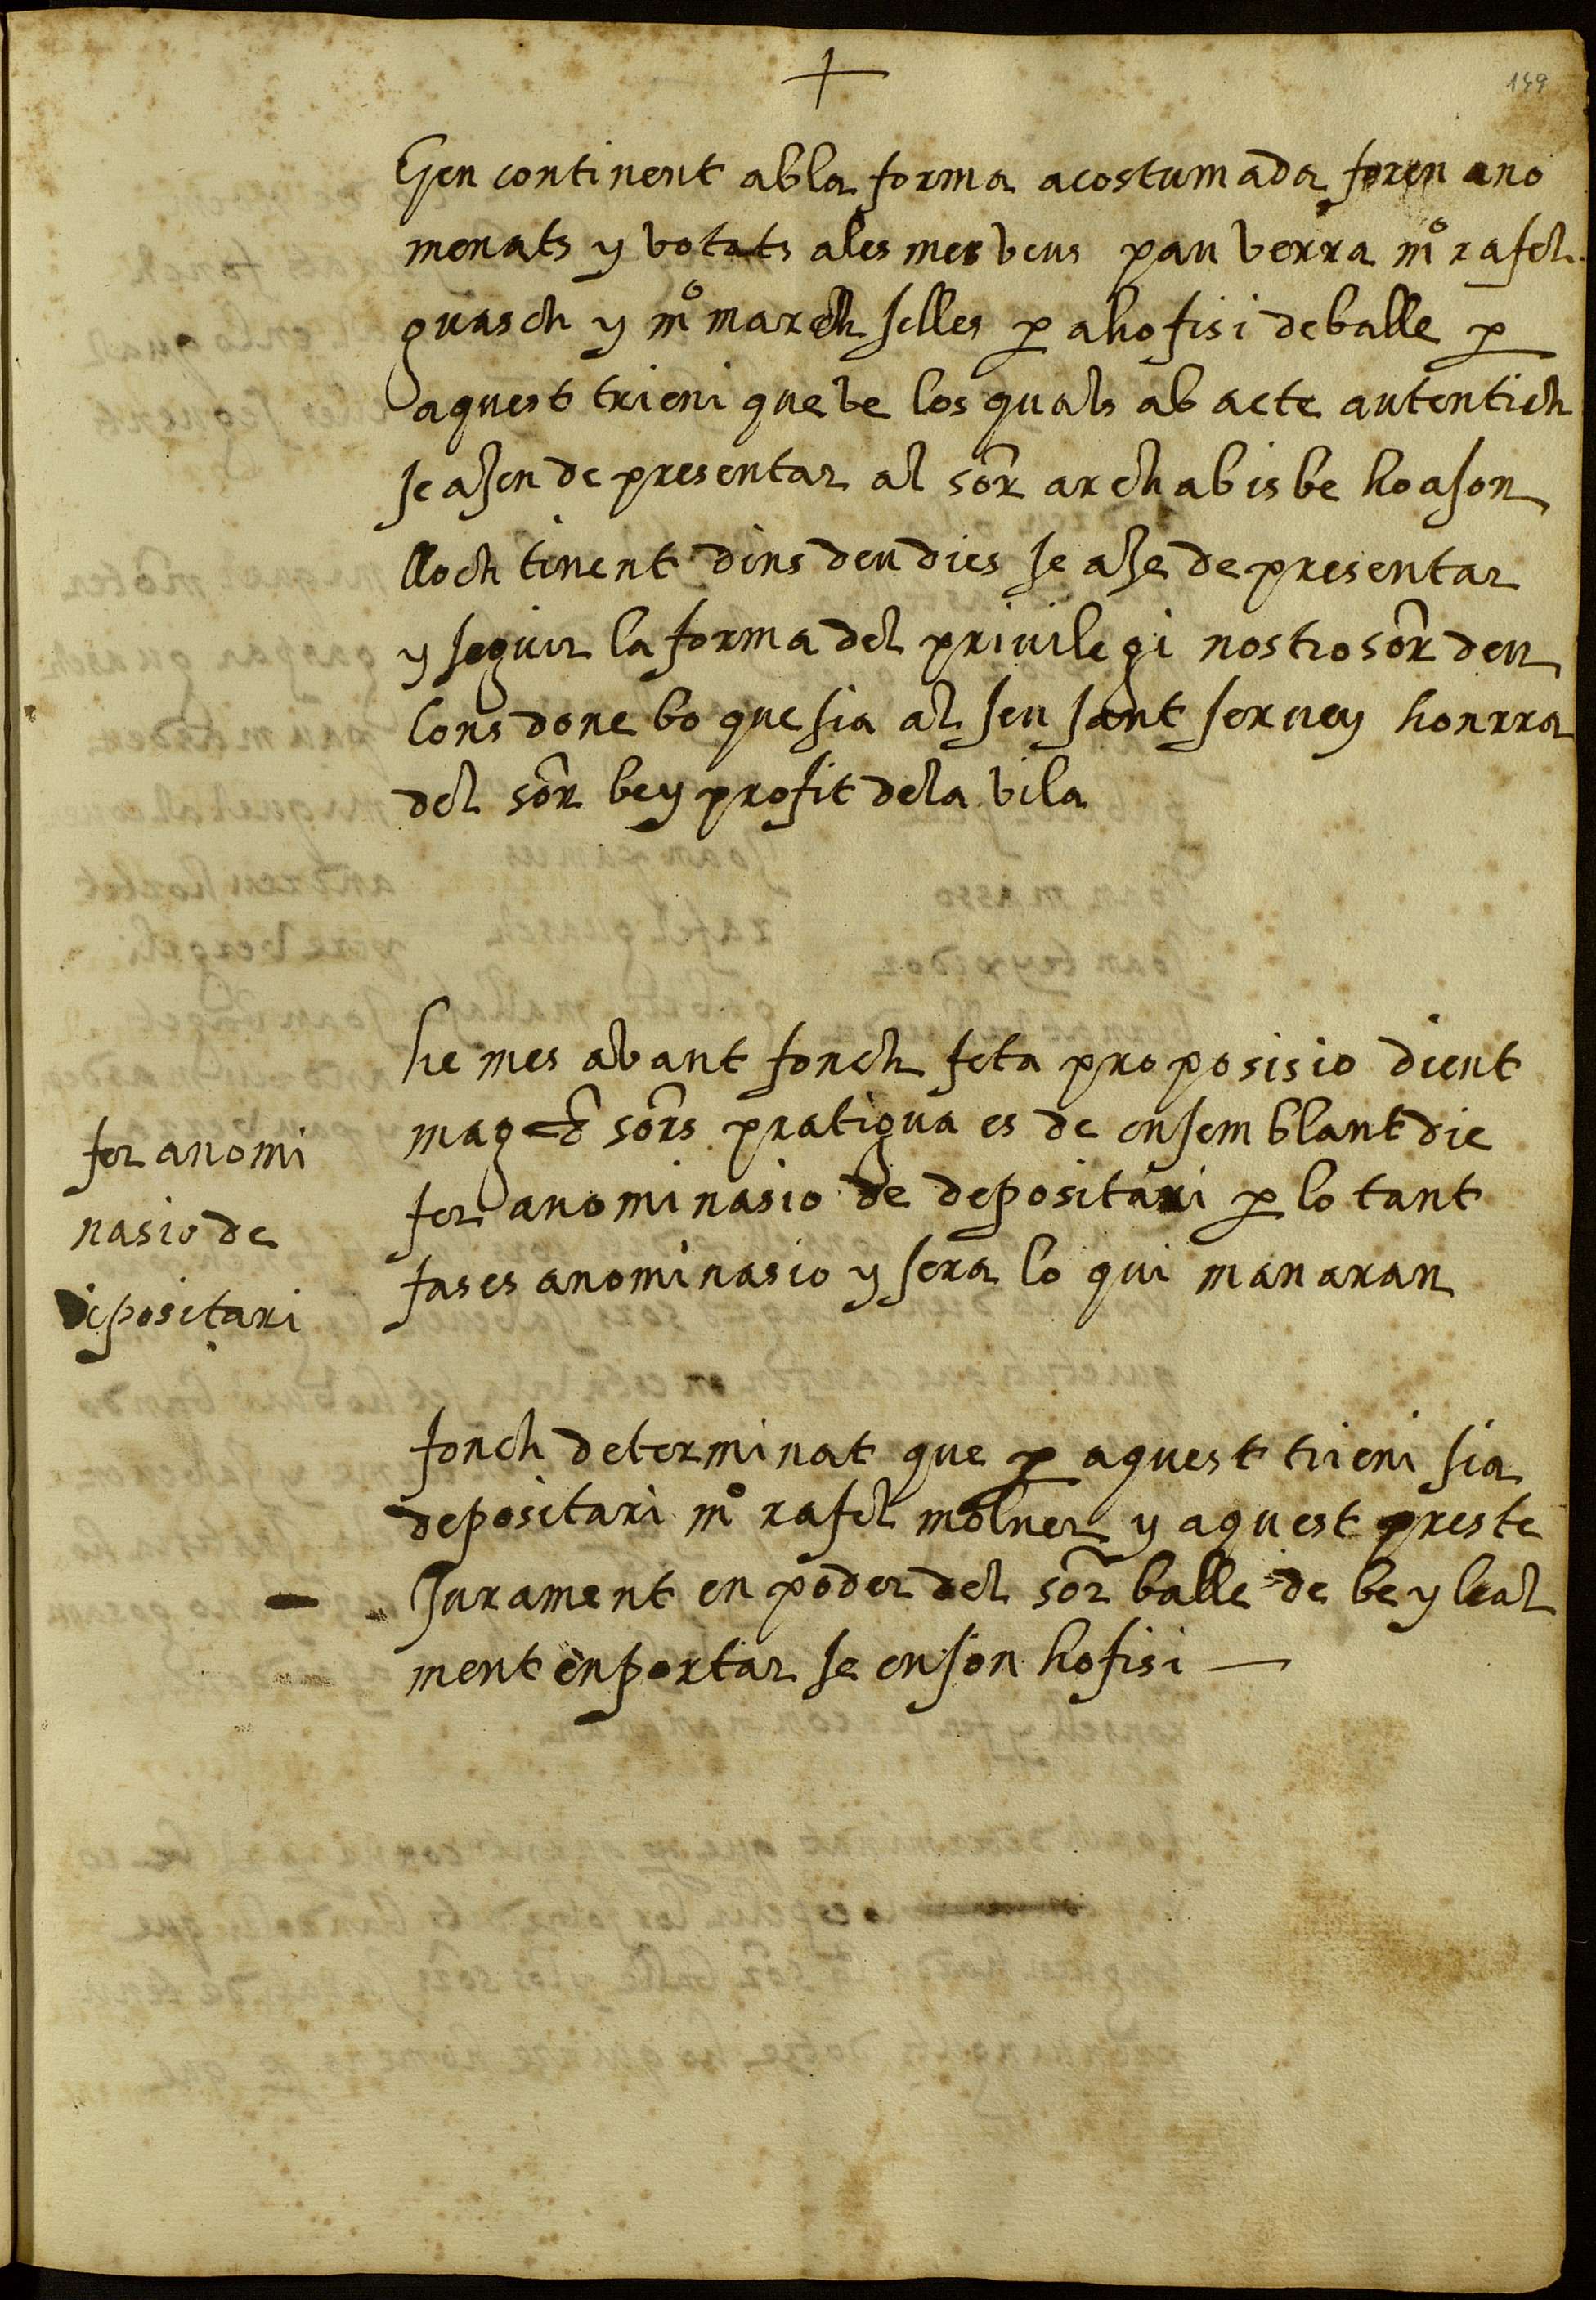 149
E en continent ab la forma acostumada foren ano
menats y votats a les mes veus pau verra mº rafel
guasch y mº march selles p a hofisi de balle p
aquest trieni que ve los quals ab acte autentich
se asen de presentar al sor archabisbe ho a son
lloch tinent dins deu dies se ase de presentar
y seguir la forma del privilegi nostro sor deu
lons done bo que sia al seu sant servey honrra
del sor be y profit de la vila
he mes avant fonch feta proposisio dient
mag sors pratiqua es de en semblant die
fer anominasio de depositari p lo tant
fases anominasio y sera lo qui manaran
fer anomi
nasio de
depositari
fonch determinat que p aquest trieni sia
depositari mº rafel molner y aquest preste
Jurament en poder del sor balle de be y leal
ment enportar se en son hofisi